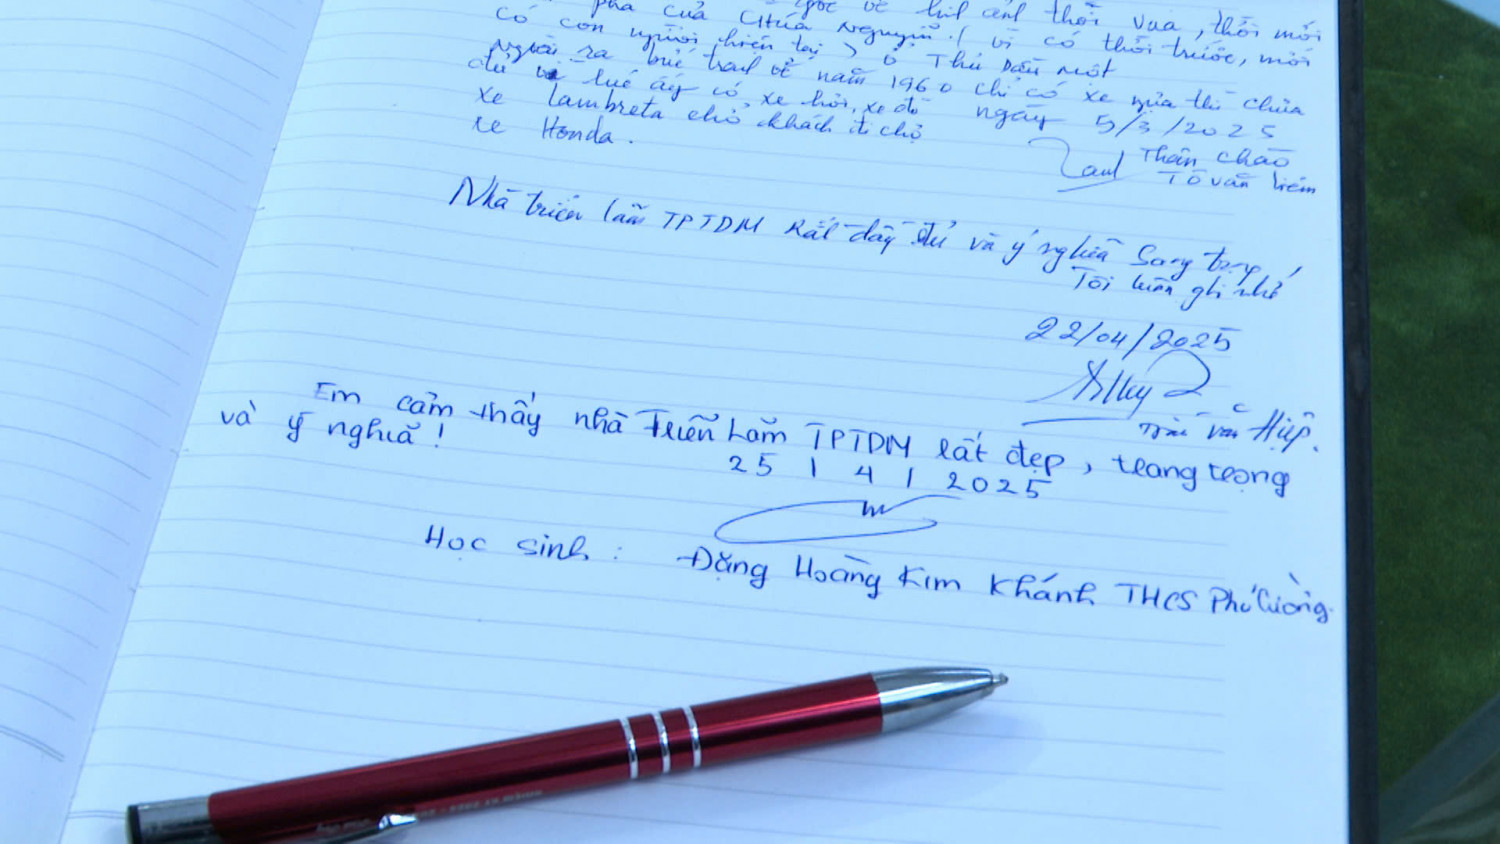 phá của Chúa Nguyễn. gốc về hình ảnh thời vua, thời mới
có con người hiện tại, vì có thời trước, mới
Ngoài ra bức tranh về ở Thủ Dầu Một
từ lúc ấy có năm 1960 chỉ có xe ngựa thì chưa
xe hơi, xe đò ngày 5/3/2025
xe Lambreta chở khách đi chợ
xe Honda.
Thân chào
Tô văn
Nhà triển lãm TPTDM Rất đầy đủ và ý nghĩa Sang trọng,
Tôi luôn ghi nhớ
22/04/2025
văn Hiệp.
Em cảm thấy nhà Triễn Lãm TPTDM rất đẹp, trang trọng
và ý nghĩa!
25/4/2025
Học sinh: Đặng Hoàng Kim Khánh THCS Phú Cường.